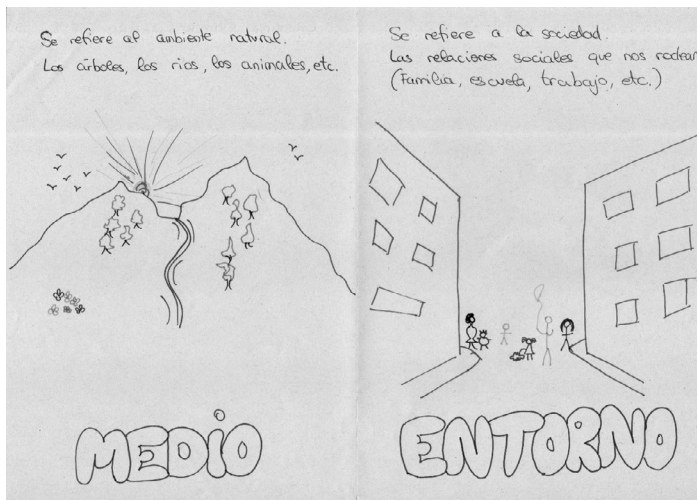 Se refiere al ambiente natural.
Los árboles, los rios, los animales, etc.
MEDIO
Se refiere a la sociedad.
Las relaciones sociales que nos rodean
(Familia, escuela, trabajo, etc.)
ENTORNO